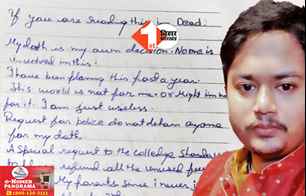 If you are reading this im Dead
1st
बिहार
My death is my own decision. No one is
involved in this!
I have been planing this for a year.
This world is not for me. Or Might Im not
for it. I am just useless.
Request for police do not detain anyone
for my death.
A special request to the colledge
refund all the unused
My parents since i never
PANORAMA